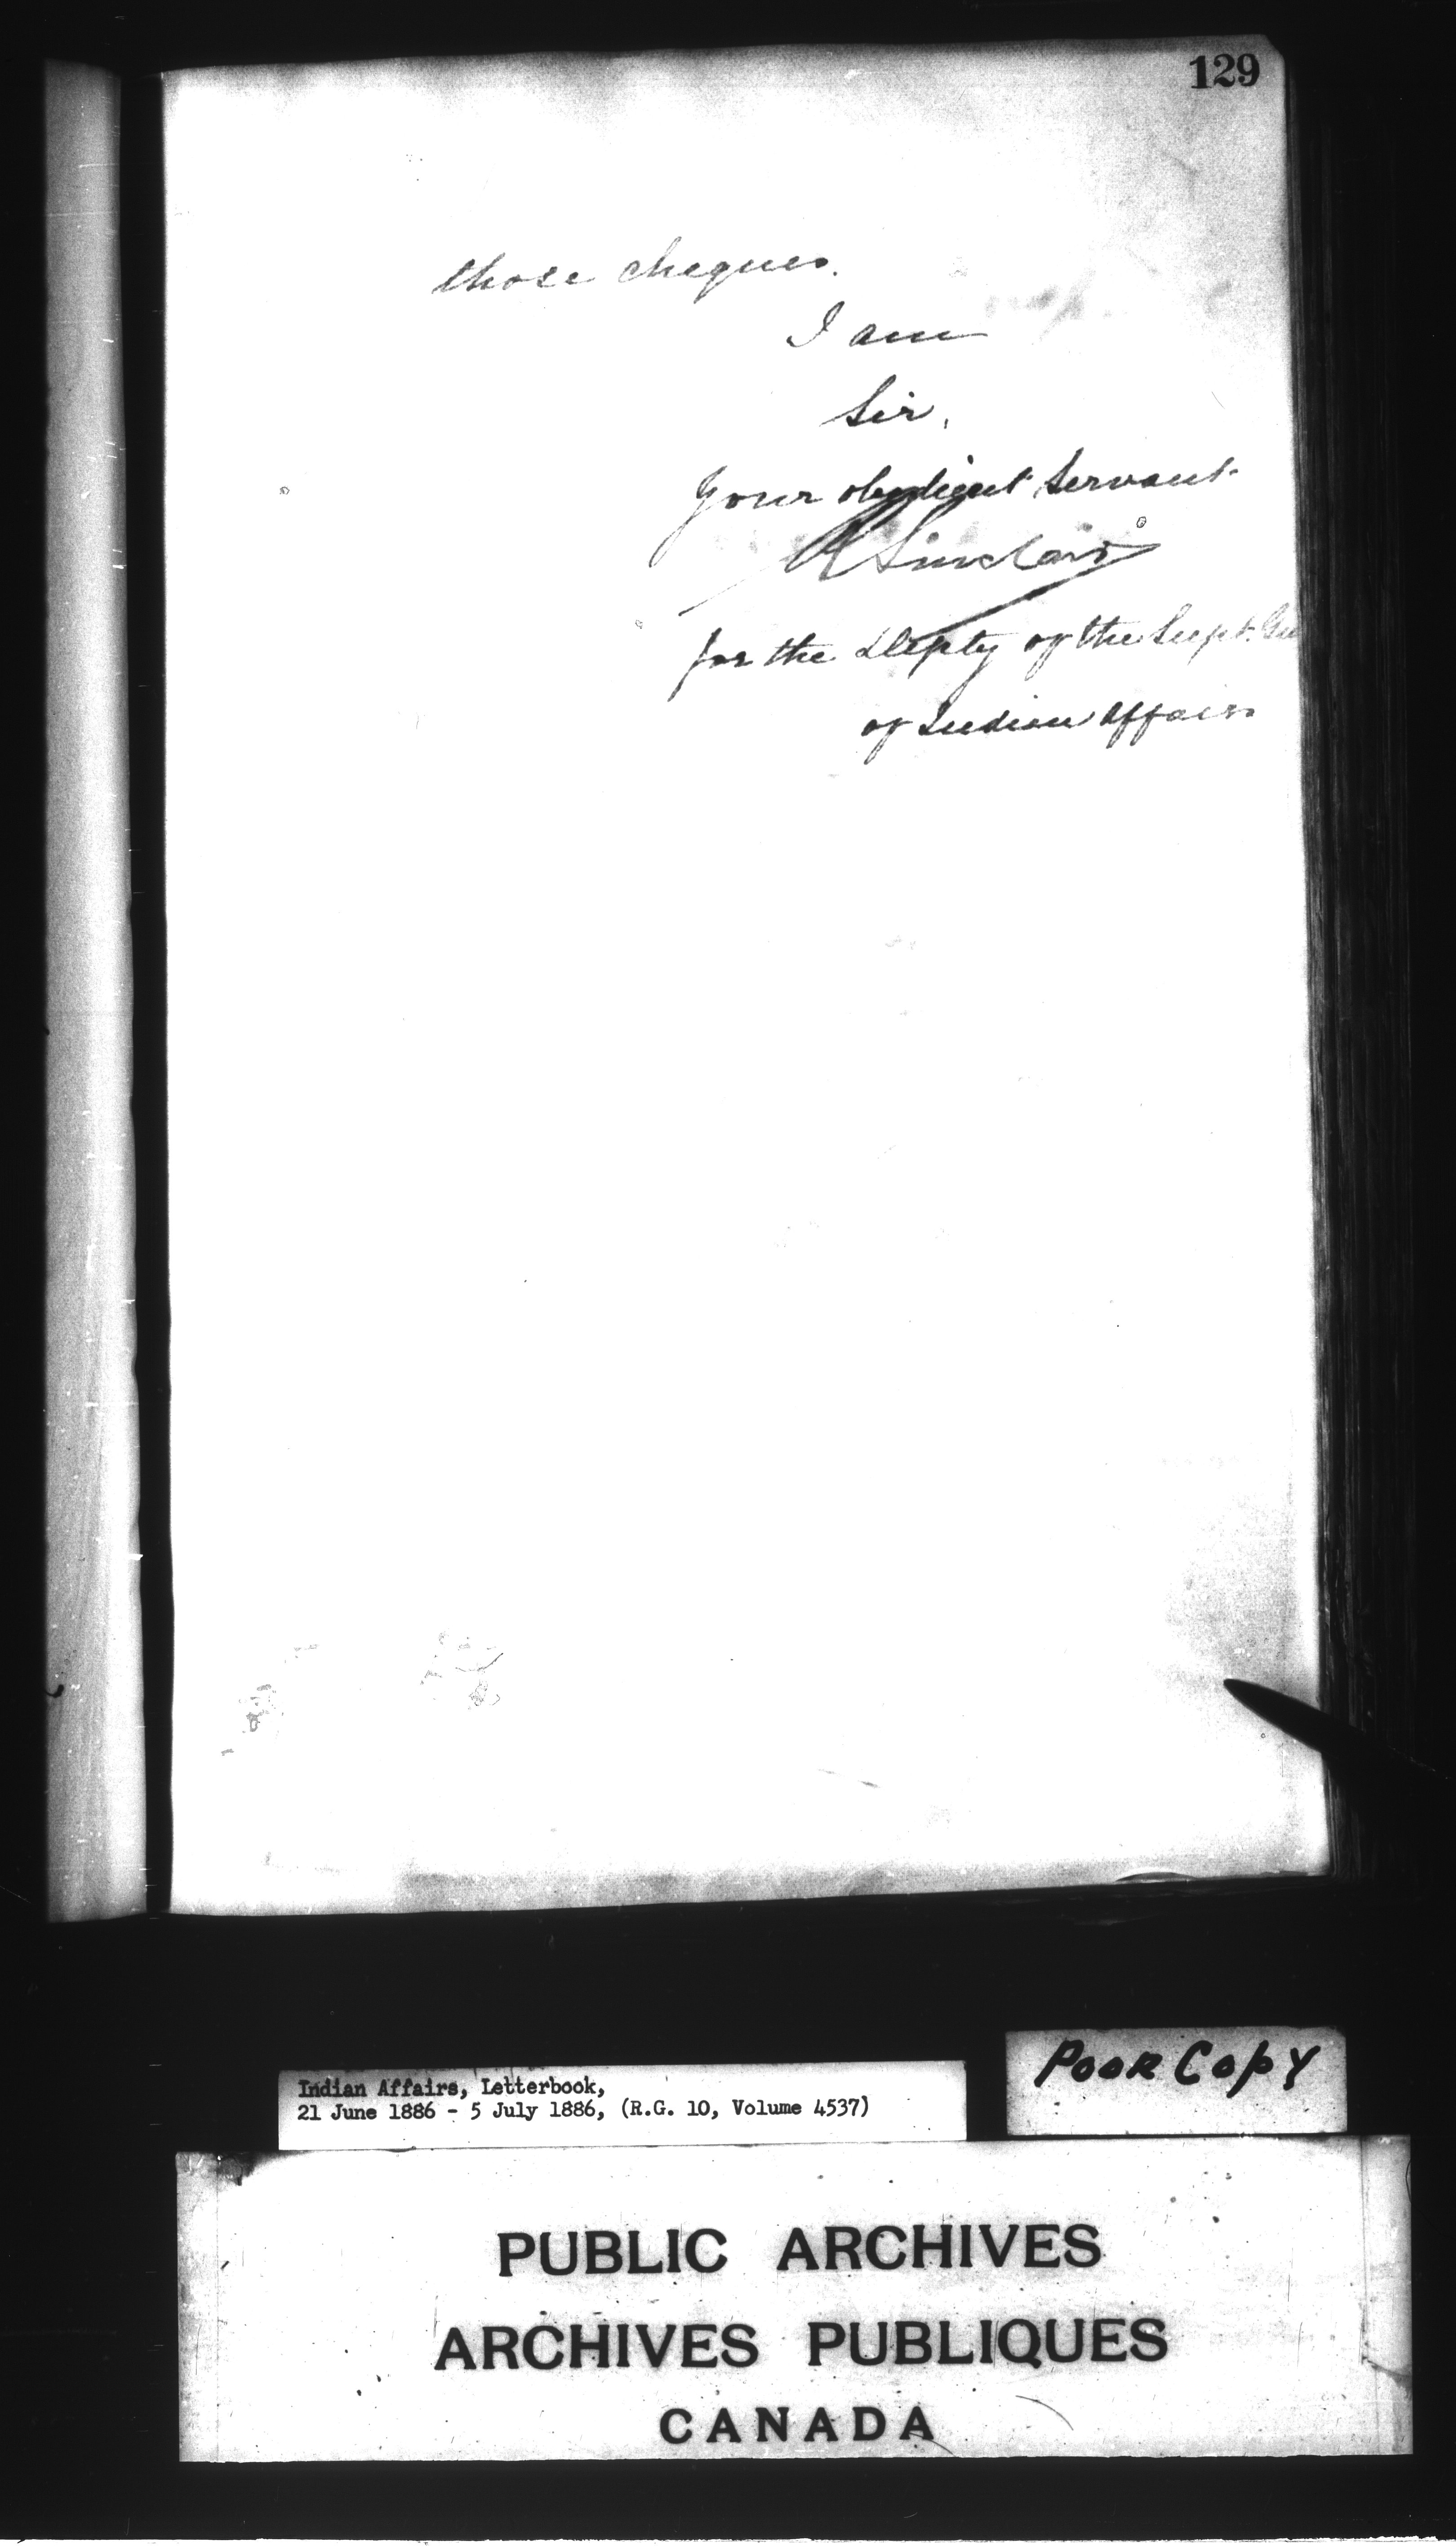 129
those cheques.
I am
Sir,
Your obedient Servant
R Sinclair
for the Depty of the Supt. Gen
of Indian Affairs
Indian Affairs, Letterbook,
21 June 1886 - 5 July 1886, (R.G. 10, Volume 4537)
POOR COPY
PUBLIC ARCHIVES
ARCHIVES PUBLIQUES
CANADA